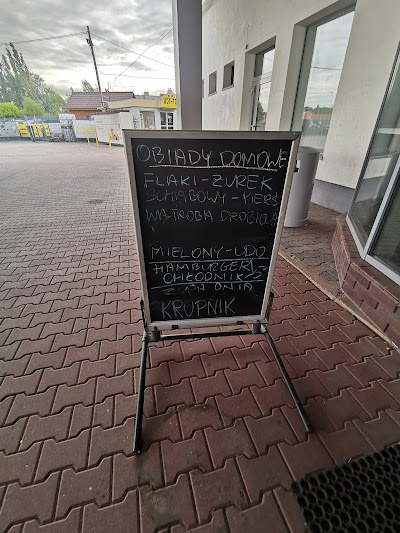 OBIADY DOMOWE
FLAKI-ŻUREK
SCHABOWY-PIERŚ
WĄTROBA DROBIOWA
MIELONY-UDO
HAMBURGERY
CHŁODNIK
Z DNIA
KRUPNIK